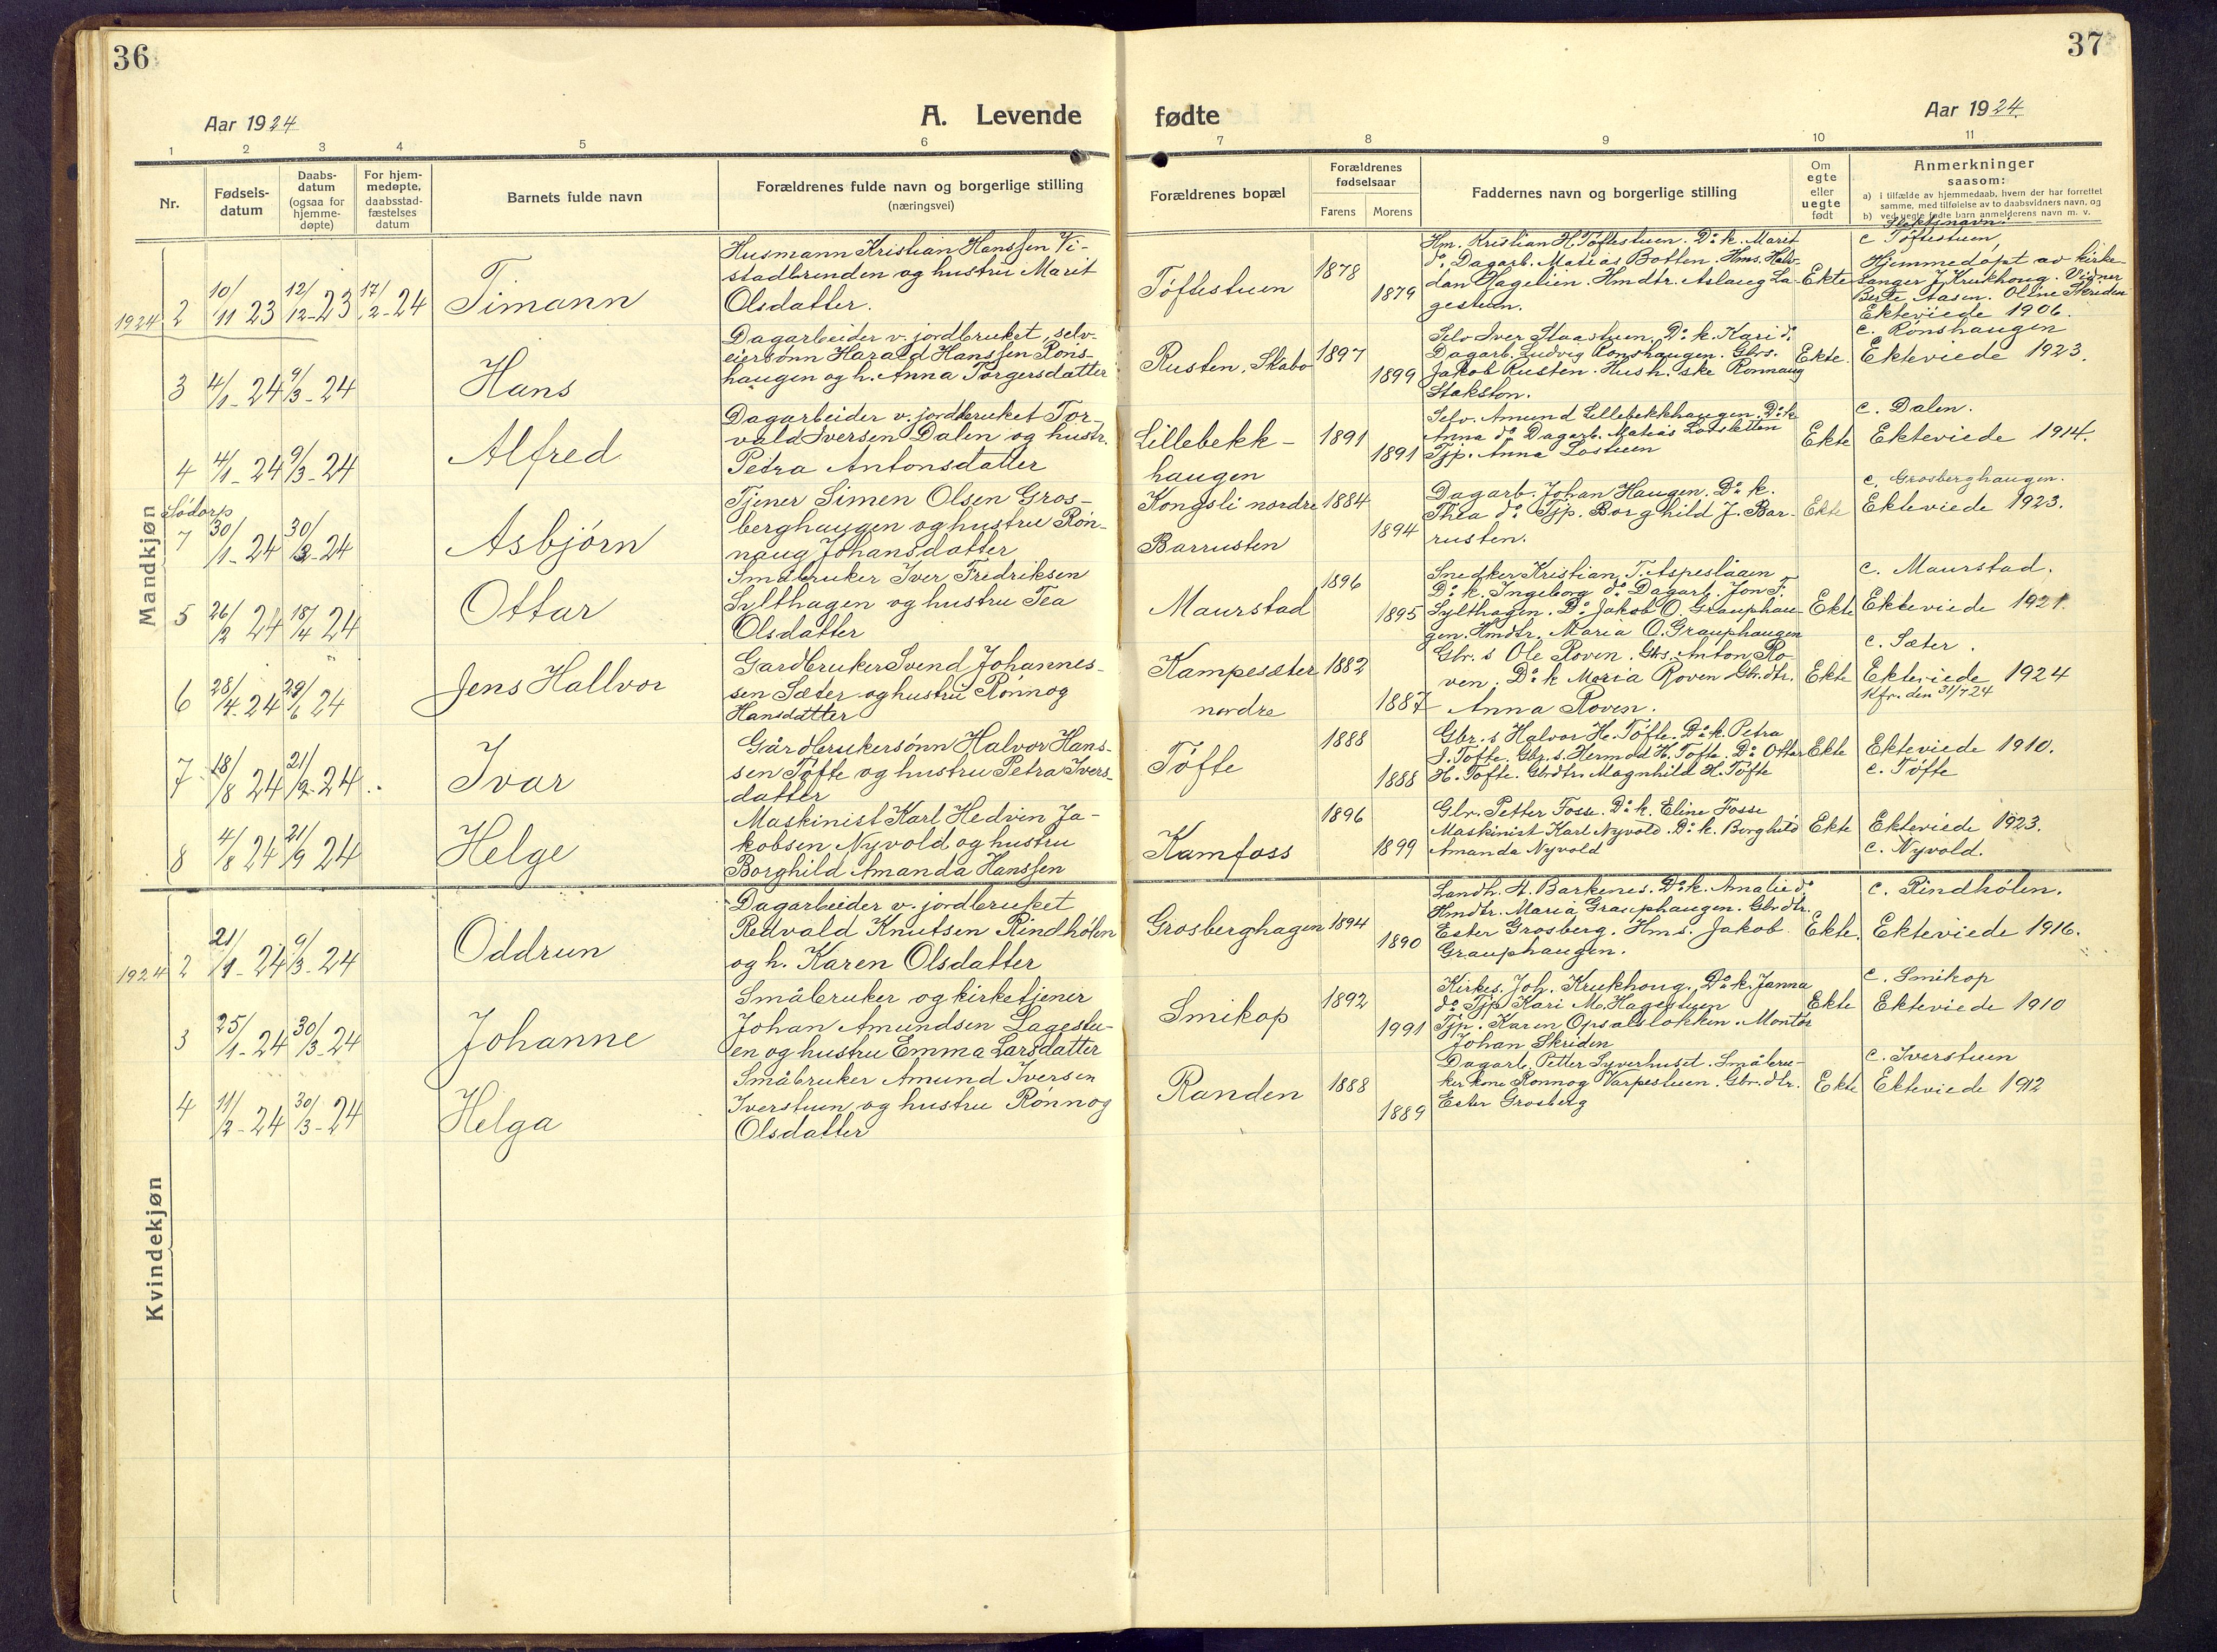 36
37
Aar 1924
A. Levende
fødte
Aar 1924.
1 2 3 4 5 6 7 8 9 10 11
Nr.
Fødsels-
datum
Daabs-
datum
(ogsaa for
hjemme-
døpte)
For hjem-
medøpte,
daabsstad-
fæstelses
datum
Barnets fulde navn
Forældrenes fulde navn og borgerlige stilling
(næringsvei)
Forældrenes bopæl
Forældrenes
fødselsaar
Farens
Morens
Faddernes navn og borgerlige stilling
Om
egte
eller
uegte
født
Anmerkninger
saasom:
a) i tilfælde av hjemmedaab, hvem der har forrettet
samme, med tilføielse av to daabsvidners navn, og
b) ved uegte fødte barn anmelderens navn m. v.
Slektsnavn:
Mandkjøn
1924 2
10/11 23
12/12-23
17/2-24
Timann
Husmann Kristian Hanssen Vi-
stadbrenden og hustru Marit
Olsdatter.
Tøftestuen
1878
1879
Hm. Kristian H. Tøftestuen. Do k. Marit
do. Dagarb. Matias Botten. Hms. Halv-
dan Hagelien. Hmdtr. Aslaug La-
gestuen.
Ekte
c Tøftestuen
Hjemmedøpt av kirke-
sanger J. Krukhoug. Vidner
Berte Aasen. Oline Skriden
Ekteviede 1906.
3
4/1-24
9/3-24
Hans
Dagarbeider v. jordbruket, selv-
eiersønn Harald Hanssen Røns-
haugen og h. Anna Torgersdatter
Rusten, Skabo
1897
1899
Selv Iver Staastuen, Do k. Kari do
Dagarb. Ludvig Rønshaugen. Gbrs.
Jakob Rusten. Hush.ske Rønnaug
Stokston.
Ekte.
c. Rønshaugen
Ekteviede 1923.
4
4/1-24
9/3-24
Alfred
Dagarbeider v. jordbruket Tor-
vald Iversen Dalen og hustr.
Petra Antonsdatter
Lillebekk-
haugen
1891
1891
Selv. Amund Lillebekkhaugen. Do k
Anna do Dagarb. Matias Losletten
Tjp. Anna Lostuen
Ekte
c. Dalen.
Ekteviede 1914.
Sødorp
7
30/1-24
30/3-24
Asbjørn
Tjener Simen Olsen Gros-
berghaugen og hustru Røn-
naug Johansdatter
Kongsli nordre
Barrusten
1884
1894
Dagarb. Johan Haugen. Do k.
Thea do. Tjp. Borghild J. Bar-
rusten.
Ekte
c. Grosberghaugen.
Ekteviede 1923.
5
26/2 24
18/4 24
Ottar
Småbruker Iver Fredriksen
Sylthagen og hustru Tea
Olsdatter
Maurstad
1896
1895
Snedker Kristian T. Aspeslåen
Do k. Ingeborg do Dagarb. Jon F.
Sylthagen. Do Jakob O. Grauphau-
gen. Hmdtr. Maria O. Grauphaugen
Ekte
c. Maurstad.
Ekteviede 1921.
6
28/4-24
29/6 24
Jens Hallvor
Gardbruker Svend Johannes-
sen Sæter og hustru Rønnog
Hansdatter
Kampesæter
nordre
1882
1887
Gbr. s Ole Roven. Gbrs. Anton Ro-
ven. Do k Maria Roven Gbr.dtr.
Anna Roven.
Ekte
c. Sæter.
Ekteviede 1924
Kfr. den 31/7 24
7
18/8 24
21/9-24
Ivar
Gårdbrukersønn Halvor Hans-
sen Tøfte og hustru Petra Ivers-
datter
Tøfte
1888
1888
Gbr. s Halvor H. Tøfte. Do k. Petra
I. Tofte. Gbr. s. Hermod H. Tofte. Do Ottar
H. Tofte. Gbrdtr. Magnhild H. Tøfte
Ekte
Ekteviede 1910.
c. Tøfte
8
4/8 24
21/9 24
Helge
Maskinist Karl Hedvin Ja-
kobsen Nyvold og hustru
Borghild Amanda Hanssen
Kamfoss
1896
1899
Gbr. Petter Fosse. Do k. Eline Fosse
Maskinist Karl Nyvold. Do k. Borghild
Amanda Nyvold
Ekte
Ekteviede 1923.
c. Nyvold.
Kvindekjøn
1924 2
21/1-24
9/3-24
Oddrun
Dagarbeider v. jordbruket
Redvald Knutsen Rindhølen
og h. Karen Olsdatter
Grosberghagen
1894
1890
Landh. A. Barkenes. Do k. Amalie do
Hmdtr. Maria Grauphaugen. Gbrdtr.
Ester Grosberg. Hms. Jakob
Grauphaugen.
Ekte.
c. Rindhølen.
Ekteviede 1916.
3
25/1-24
30/3-24
Johanne
Småbruker og kirketjener
Johan Amundsen Lagestu-
en og hustru Emma Larsdatter
Smikop
1892
1991
Kirkes. Joh. Krukhoug. Do k. Janna
do Tjp Kari M. Hagestuen
Tjp. Karen Opsalsløkken. Montør
Johan Skriden
Ekte
c. Smikop
Ekteviede 1910
4
11/2-24
30/3-24
Helga
Småbruker Amund Iversen
Iverstuen og hustru Rønnog
Olsdatter
Randen
1888
1889
Dagarb. Petter Syverhuset. Småbru-
ker kone Rønnog Varpestuen. Gbr.dtr.
Ester Grosberg
Ekte
c. Iverstuen
Ekteviede 1912